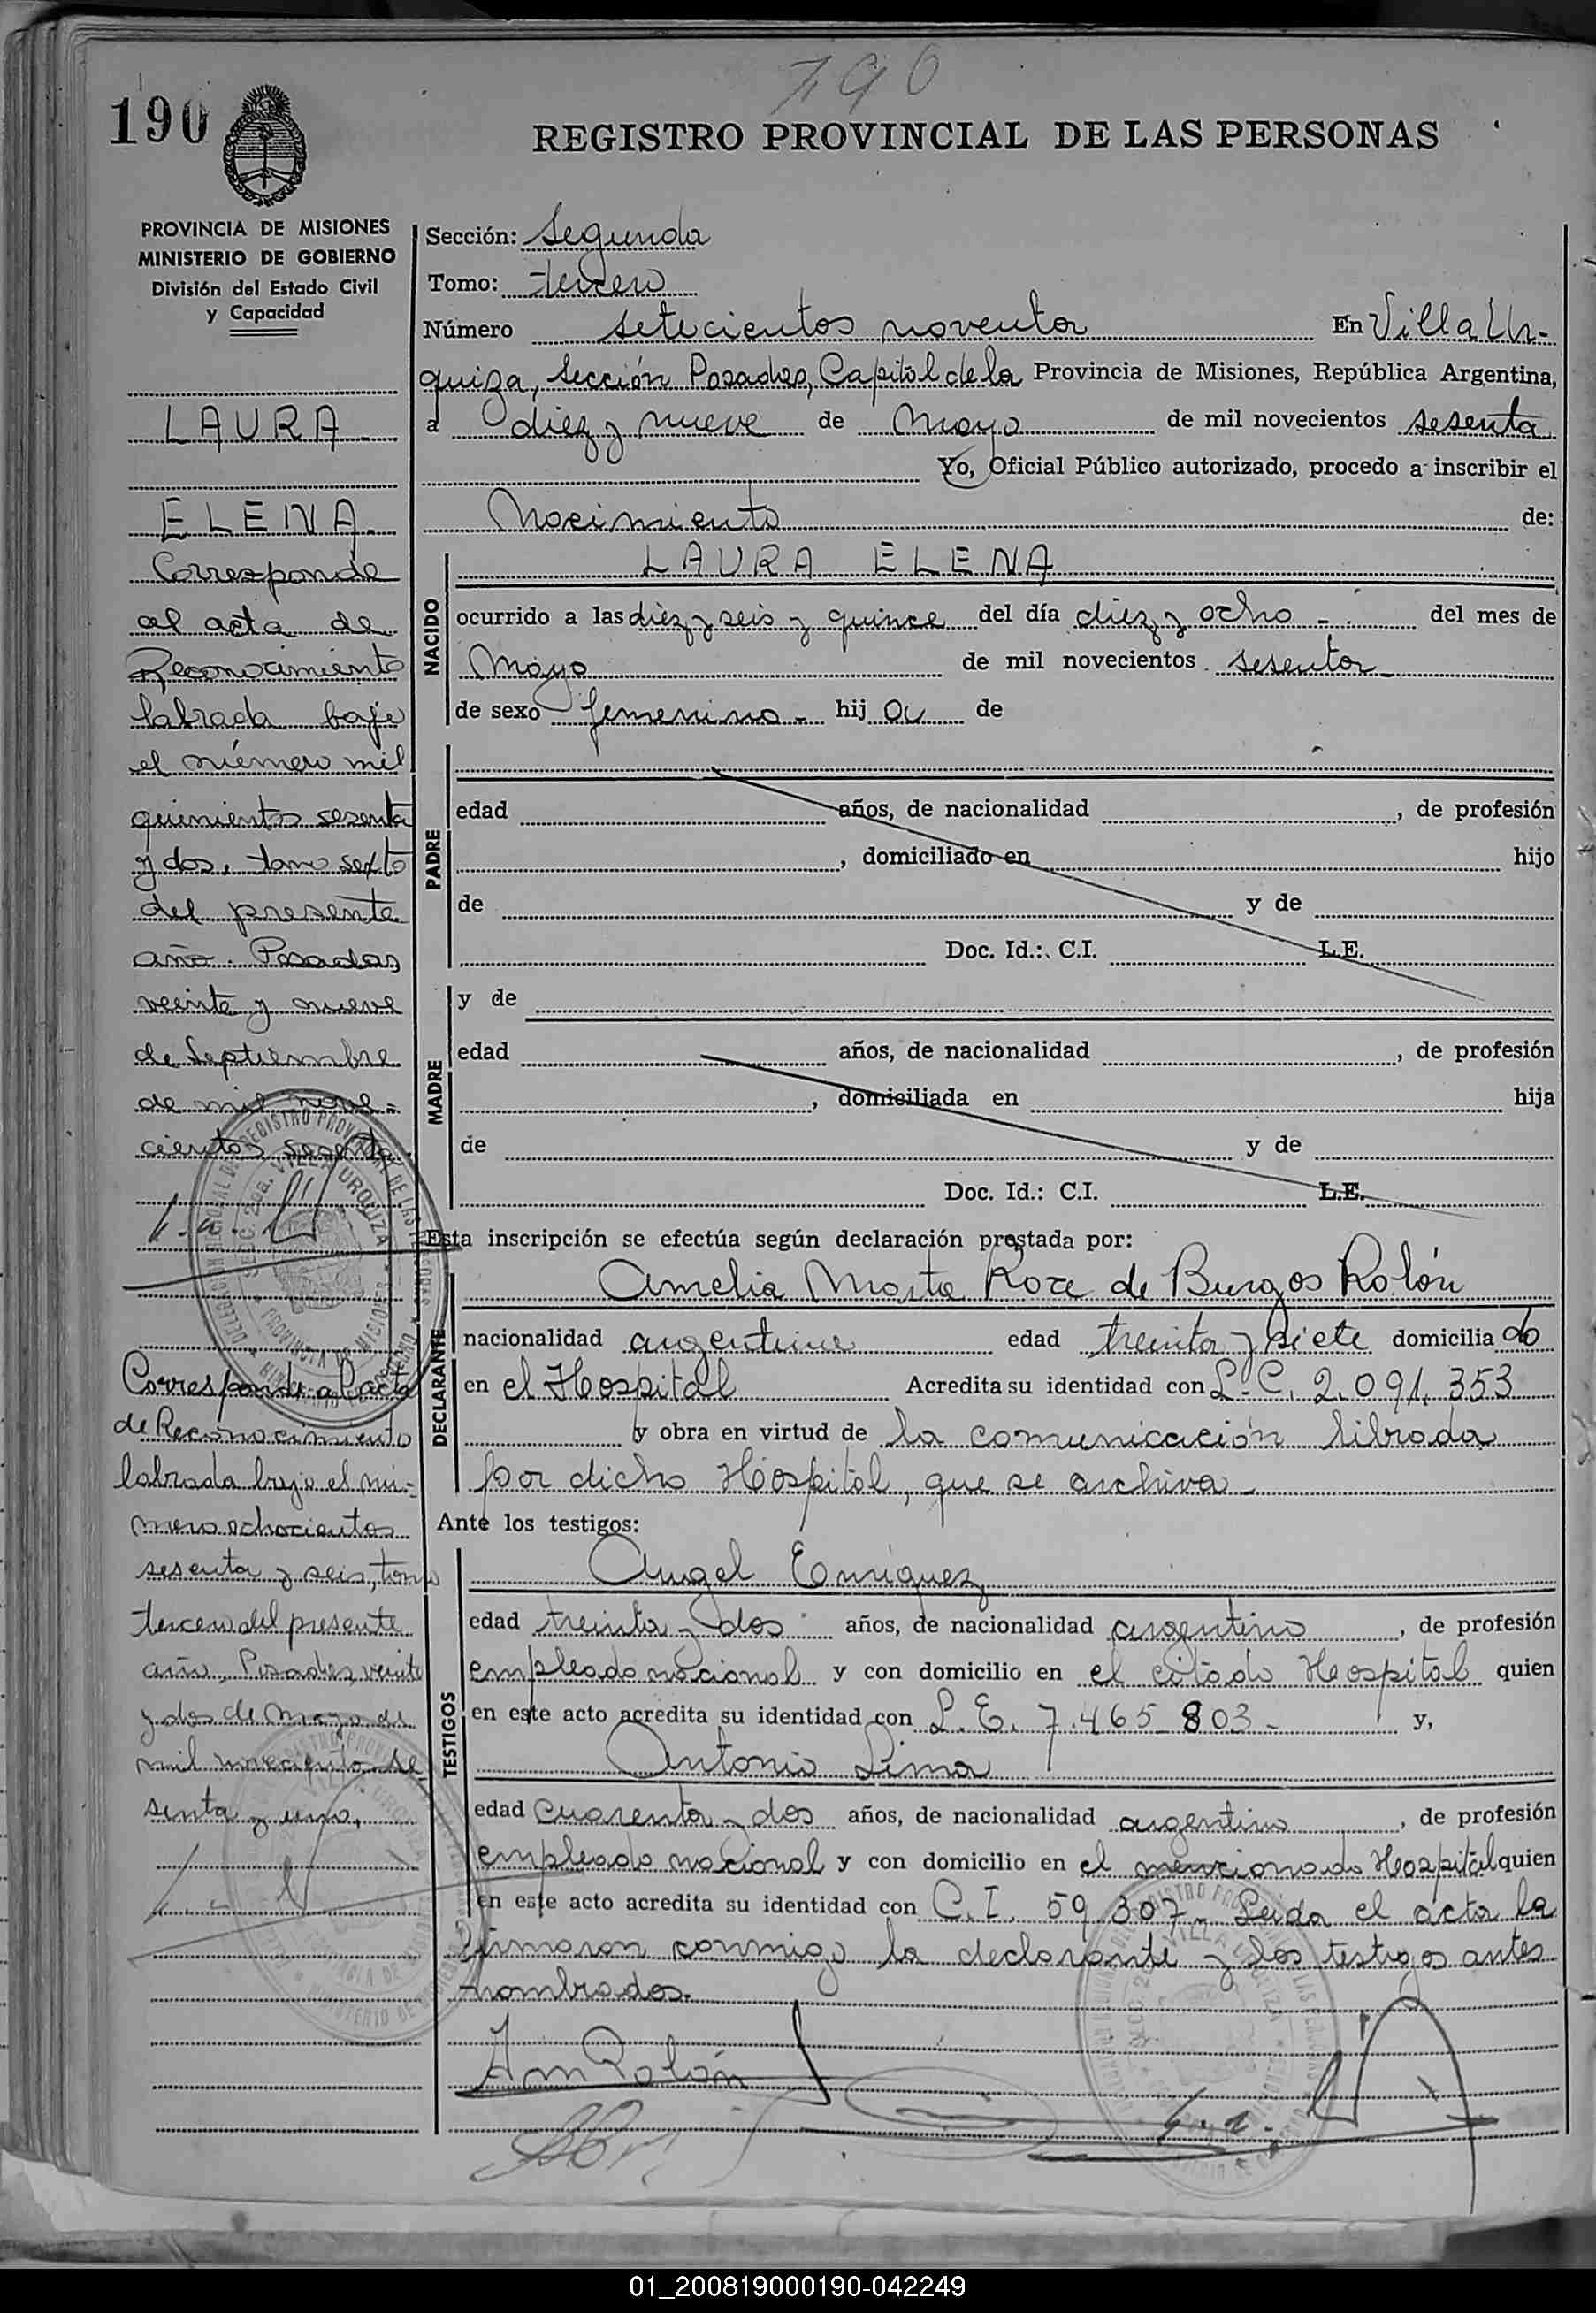 790
190
REGISTRO PROVINCIAL DE LAS PERSONAS
PROVINCIA DE MISIONES
MINISTERIO DE GOBIERNO
División del Estado Civil
y Capacidad
LAURA
ELENA
Corresponde
al acta de
Reconocimiento
labrada bajo
el número mil
quinientos sesenta
y dos, tomo sexto
del presente
año. Posadas
veinte y nueve
de Septiembre
de mil nove=
cientos sesenta
Corresponde al acta
de Reconocimiento
labrada bajo el nú-
mero ochocientos
sesenta y seis, tomo
tercero del presente
año, Posadas, veinte
y dos de Mayo de
mil novecientos se
senta y uno.
Sección: Segunda
Tomo: tercero
Número setecientos noventa En Villa Ur-
quiza, Sección Posadas, Capital de la Provincia de Misiones, República Argentina,
a diez y nueve de Mayo de mil novecientos sesenta
Yo, Oficial Público autorizado, procedo a inscribir el
Nacimiento de:
NACIDO
LAURA ELENA
ocurrido a las diez y seis y quince del día diez y ocho - . del mes de
Mayo de mil novecientos sesenta
de sexo femenino - hij a de
PADRE
edad años, de nacionalidad , de profesión
, domiciliado en hijo
de y de
Doc. Id.: C.I. L.E.
MADRE
y de
edad años, de nacionalidad , de profesión
, domiciliada en hija
de y de
Doc. Id.: C.I. L.E.
Esta inscripción se efectúa según declaración prestada por:
DECLARANTE
Amelia Marta de Burgos Rolón
nacionalidad argentina edad treinta y siete domicilia do
en el Hospital Acredita su identidad con L.C. 2.091.353
y obra en virtud de la comunicación librada
por dicho Hospital, que se archiva -
Ante los testigos:
TESTIGOS
Angel Enriquez
edad treinta y dos años, de nacionalidad argentino , de profesión
empleado nacional y con domicilio en el citado Hospital quien
en este acto acredita su identidad con L.E. 7.465-803 - y,
Antonio Lima
edad cuarenta y dos años, de nacionalidad argentino , de profesión
empleado nacional y con domicilio en el mencionado Hospital quien
en este acto acredita su identidad con C.I. 59.307- Leida el acta la
firmaron conmigo la declarante y los testigos antes
nombrados.
Rolón
01_200819000190-042249